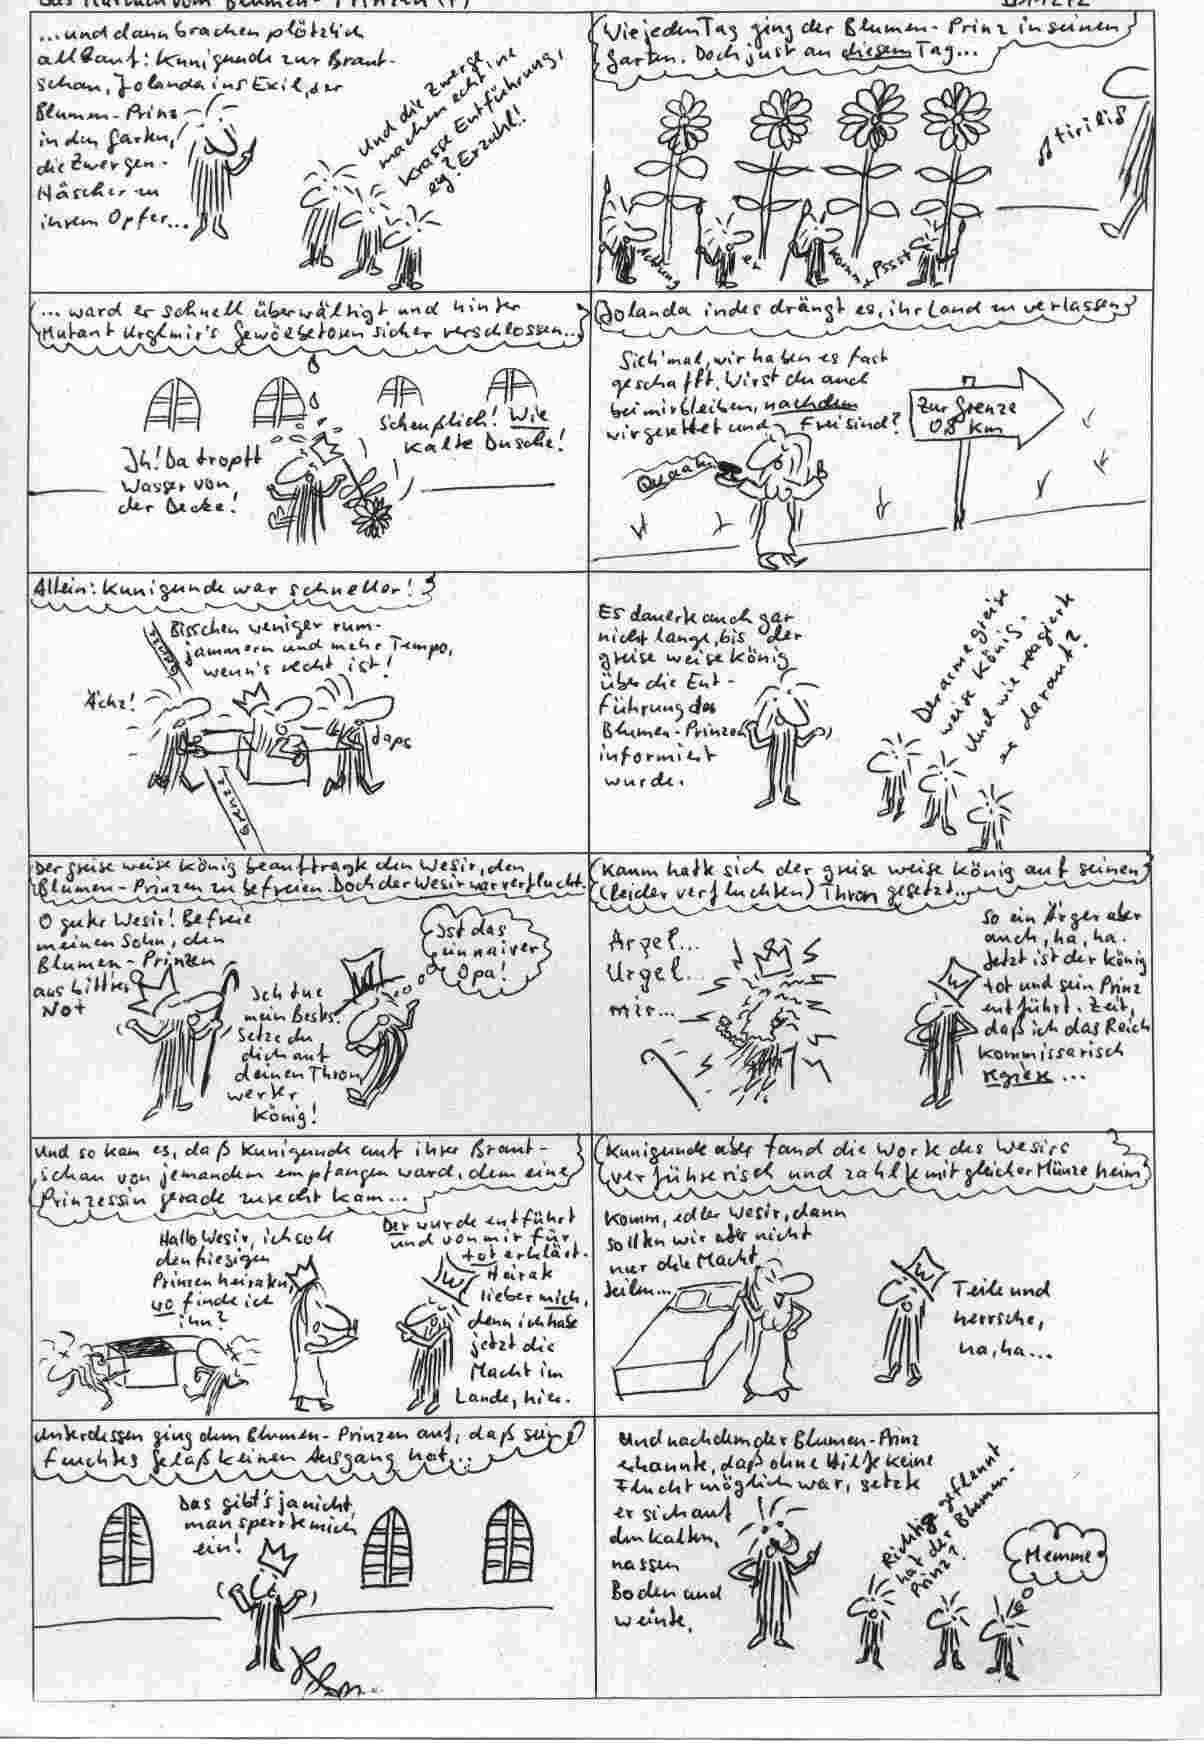 Das Märchen vom Blumen-Prinzen
...und dann brachen plötzlich
alle auf: Kunigunde zur Braut-
schau, Jolanda ins Exil, der
Blumen-Prinz
in den Garten,
die Zwergen-
Häscher zu
ihrem Opfer...
Und die Zwerge
machen echt ine
krasse Entführung,
ey? Erzähl!
Wie jeden Tag ging der Blumen-Prinz in seinen
Garten. Doch just an diesem Tag...
tirilið
Achtung
er
kommt
Pssst
... ward er schnell überwältigt und hinter
Mutant Urghmir's Gewölbetoren sicher verschlossen...
Ih! Da tropft
Wasser von
der Decke!
Scheußlich! Wie
kalte Dusche!
Jolanda indes drängt es, ihr Land zu verlassen
Sieh' mal, wir haben es fast
geschafft. Wirst du auch
bei mir bleiben, nachdem
wir gerettet und frei sind?
Quaak
Zur Grenze
0,8 km
Allein: Kunigunde war schneller!
Bisschen weniger rum-
jammern und mehr Tempo,
wenn's recht ist!
Grenze
Ächz!
daps
Grenze
Es dauerte auch gar
nicht lange, bis der
greise weise König
über die Ent-
führung des
Blumen-Prinzen
informiert
wurde.
Der arme greise
weise König.
Und wie reagierte
er darauf?
Der greise weise König beauftragte den Wesir, den
Blumen-Prinzen zu befreien. Doch der Wesir war verflucht.
O guter Wesir! Befreie
meinen Sohn, den
Blumen-Prinzen
aus bittrer
Not
Ich tue
mein Bestes.
Setze du
dich auf
deinen Thron
werter
König!
Ist das
ein naiver
Opa!
Kaum hatte sich der greise weise König auf seinen
(leider verfluchten) Thron gesetzt...
Argel...
Urgel...
mir...
So ein Ärger aber
auch, ha, ha.
Jetzt ist der König
tot und sein Prinz
entführt. Zeit,
daß ich das Reich
kommissarisch
regiere...
Und so kam es, daß Kunigunde auf ihrer Braut-
schau von jemandem empfangen ward, dem eine
Prinzessin gerade zurecht kam...
Hallo Wesir, ich soll
den hiesigen
Prinzen heiraten,
wo finde ich
ihn?
Der wurde entführt
und von mir für
tot erklärt.
Heirate
lieber mich,
denn ich habe
jetzt die
Macht im
Lande, hier.
Kunigunde aber fand die Worte des Wesirs
verführerisch und zahlte mit gleicher Münze heim
Komm, edler Wesir, dann
sollten wir aber nicht
nur die Macht
teilen...
Teile und
herrsche,
ha, ha...
Unterdessen ging dem Blumen-Prinzen auf, daß sein
feuchtes Gelaß keinen Ausgang hat...
Das gibt's ja nicht,
man sperrte mich
ein!
Und nachdem der Blumen-Prinz
erkannte, daß ohne Hilfe keine
Flucht möglich war, setzte
er sich auf
den kalten,
nassen
Boden und
weinte.
Richtig geflennt
hat der Blumen-
Prinz?
Memme